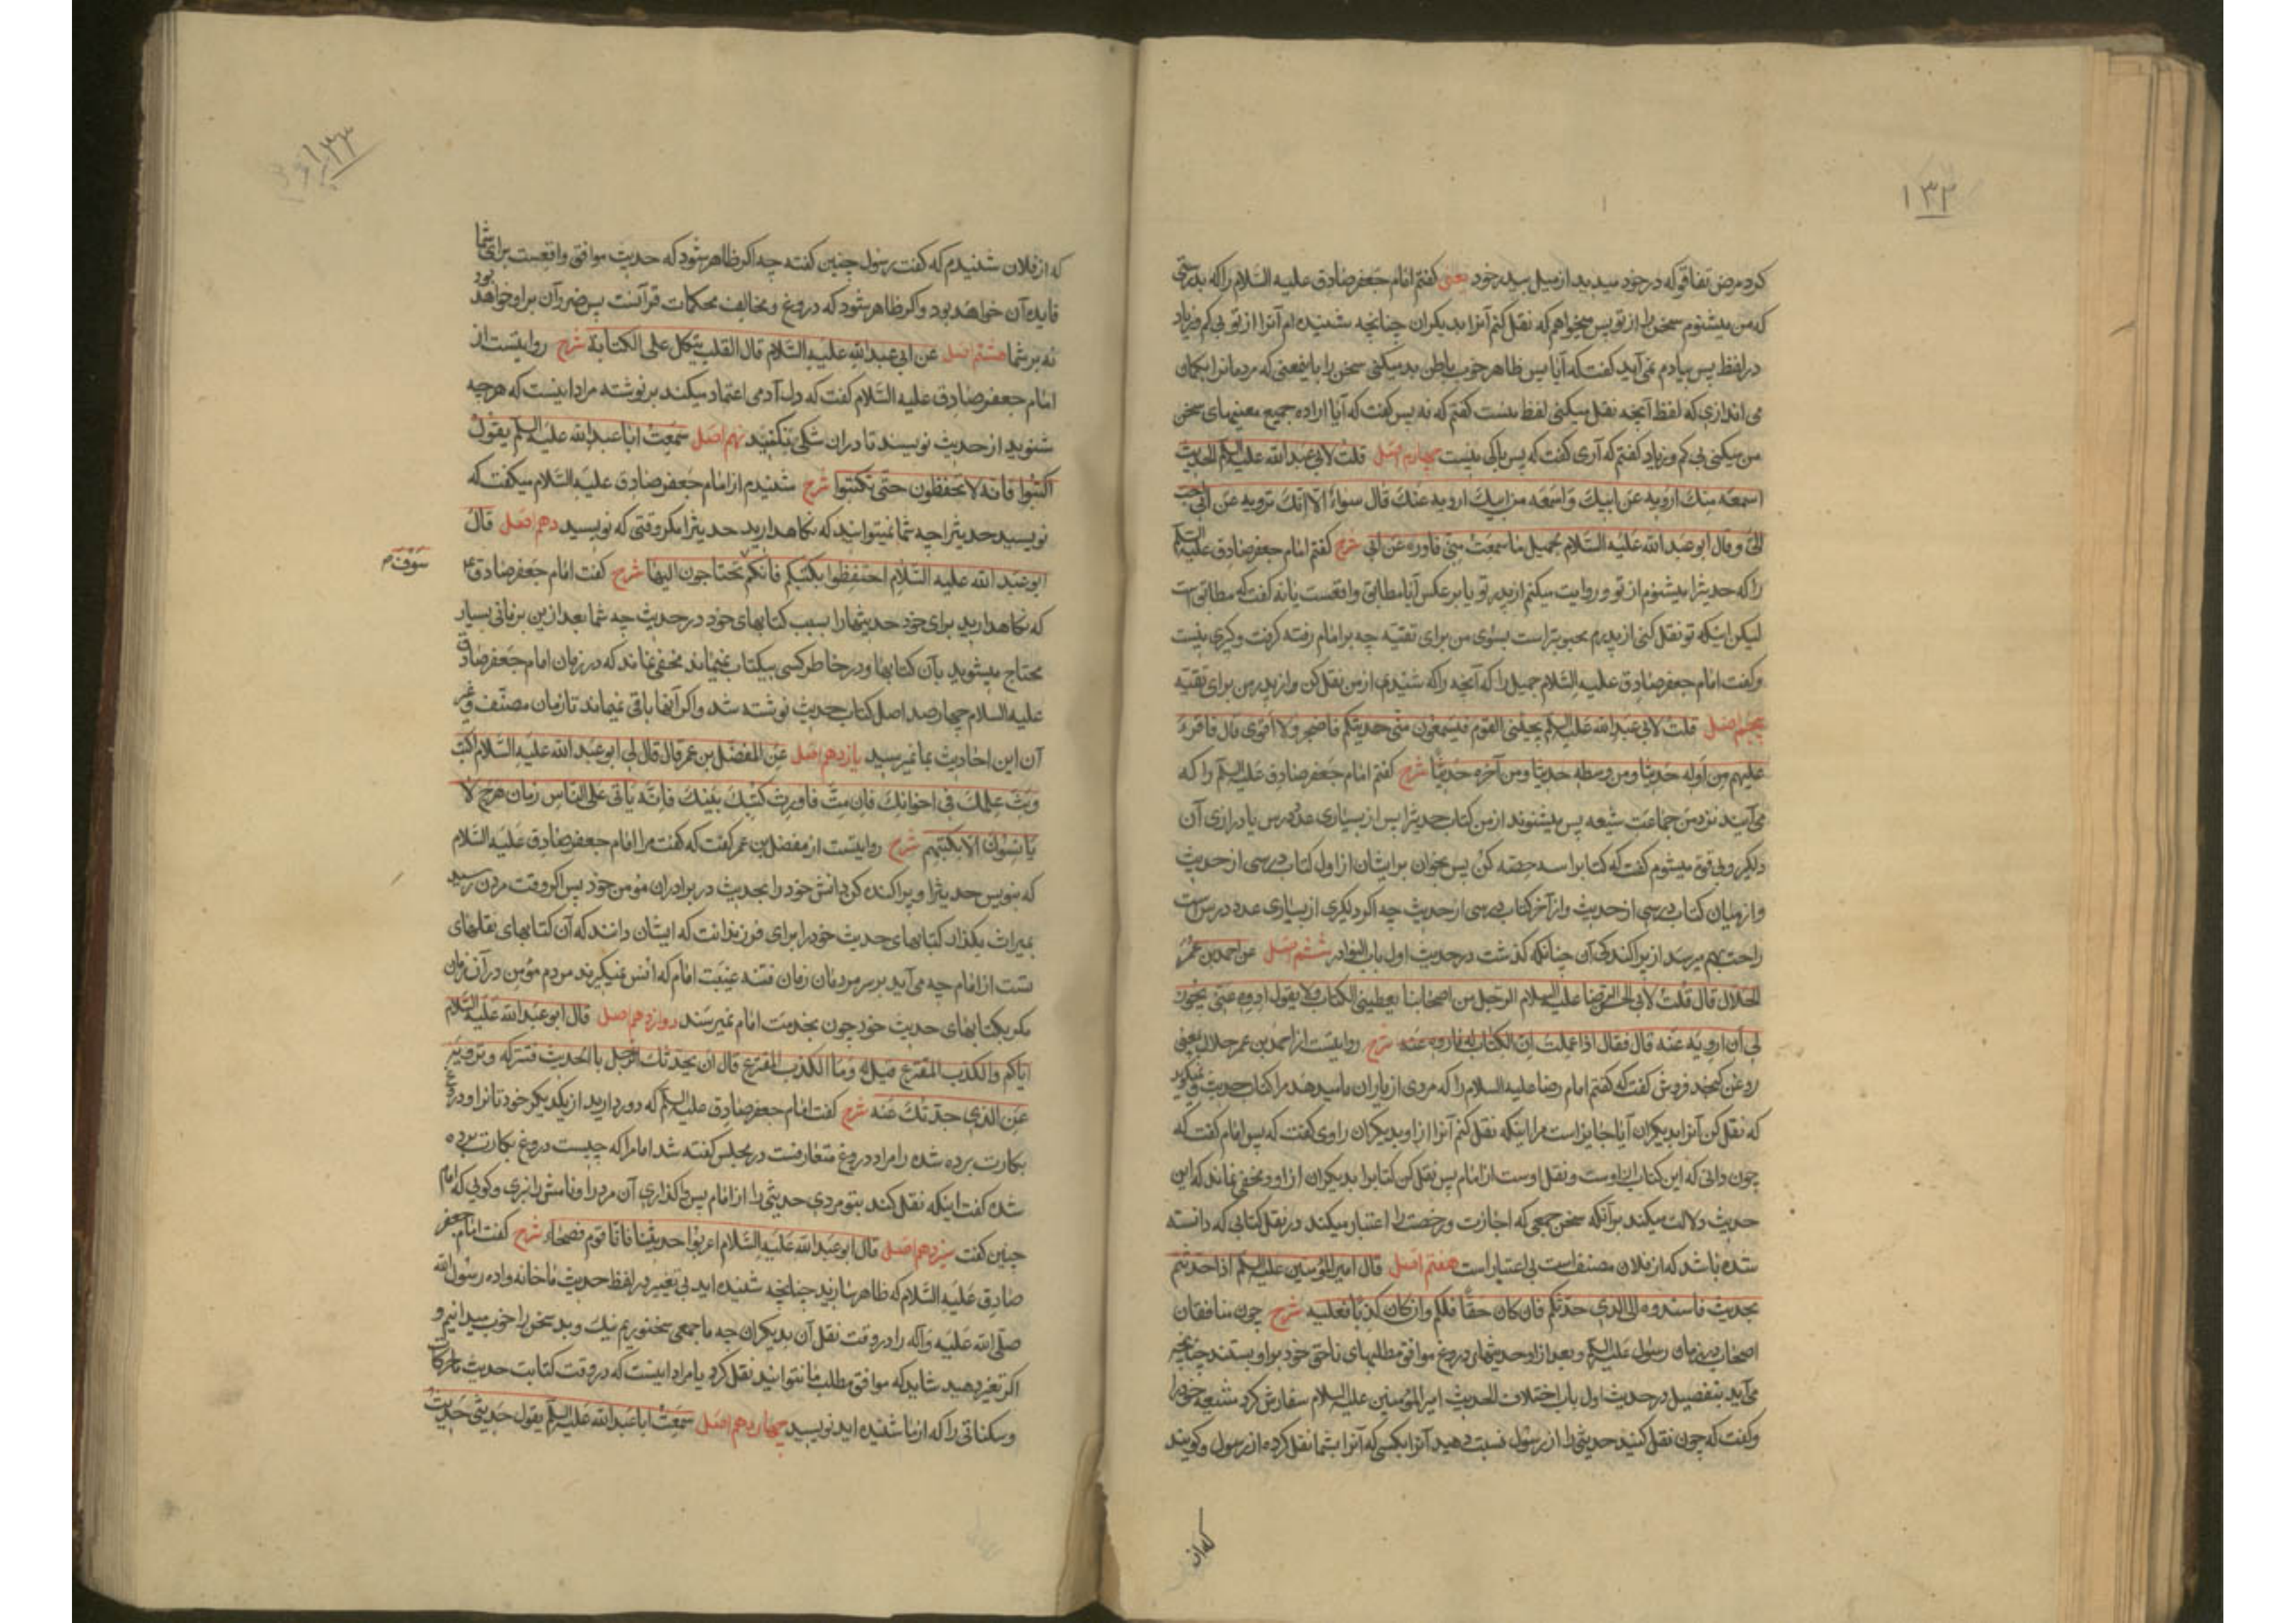 ۱۳۲
کرد مرض نفاقی که در خود میدید از میل پسر خود یعنی کفتم امام جعفر صادق علیه السلام را که بدرستی
که من میشنوم سخن را از تو پس میخواهم که نقل کنم آنرا بدیکران چنانچه شنیده ام آنرا از تو بی کم و زیاد
در لفظ پس بیادم نمی آید کفت که آیا پس ظاهر خوب باطن بد میکنی سخن را باینمعنی که مردمانرا بکمان
می اندازی که لفظ آنچه نقل میکنی لفظ منست کفتم که نه پس کفت که آیا اراده جمیع معنیهای سخن
من میکنی بی کم و زیاد کفتم که آری کفت که پس باکی نیست چهارم اصل قلت لابی عبد الله علیه السلم الحدیث
اسمعه منک ارویه عن ابیک و اسمعه من ابیک ارویه عنک قال سواء الا انک ترویه عن ابی احب
الی و قال ابو عبد الله علیه السلام لجمیل ما سمعت منی فاروه عن ابی شرح کفتم امام جعفر صادق علیه السلم
را که حدیثرا میشنوم از تو و روایت میکنم از پدر تو یا بر عکس آیا مطابق واقعست یا نه کفت که مطابق است
لیکن اینکه تو نقل کنی از پدرم محبوبتر است بسوی من برای تقیه چه بر امام رفته کرفت و کیری نیست
و کفت امام جعفر صادق علیه السلام جمیل را که آنچه را که شنیدی از من نقل کن و از پدر من برای تقیه
پنجم اصل قلت لابی عبد الله علیه السلم یجیئنی القوم فیستمعون منی حدیثکم فاضجر و لا اقوی قال فاقرء
علیهم من اوله حدیثا و من وسطه حدیثا و من آخره حدیثا شرح کفتم امام جعفر صادق علیه السلم را که
می آیند نزد من جماعت شیعه پس میشنوند از من کتاب حدیثرا پس از بسیاری عدد درس یا درازی آن
دلکیر و بی قوت میشوم کفت که کتابرا سه حصه کن پس بخوان بر ایشان از اول کتاب درسی از حدیث
و از میان کتاب درسی از حدیث و از آخر کتاب درسی از حدیث چه اکر دلکیری از بسیاری عدد درس است
راحت بهم میرسد از پراکندکی آن چنانکه کذشت در حدیث اول باب النوادر ششم اصل عن احمد بن عمر
الحلال قال قلت لابی الحسن الرضا علیه السلام الرجل من اصحابنا یعطینی الکتاب و لا یقول اروه عنی یجوز
لی ان ارویه عنه قال فقال اذا علمت ان الکتاب له فاروه عنه شرح روایتست از احمد بن عمر حلال یعنی
روغن کنجد فروش کفت که کفتم امام رضا علیه السلام را که مردی از یاران ما میدهد مرا کتاب حدیث و نمیکوید
که نقل کن آنرا بدیکران آیا جایز است مرا اینکه نقل کنم آنرا از او بدیکران راوی کفت که پس امام کفت که
چون دانی که این کتاب از اوست و نقل اوست از امام پس نقل کن کتابرا بدیکران از او و مخفی نماند که این
حدیث دلالت میکند بر آنکه سخن جمعی که اجازت و رخصت را اعتبار میکند در نقل کتابی که دانسته
شده باشد که از فلان مصنف است بی اعتبار است هفتم اصل قال امیر المؤمنین علیه السلم اذا حدثتم
بحدیث فاسندوه الی الذی حدثکم فان کان حقا فلکم و ان کان کذبا فعلیه شرح چون منافقان
اصحاب در زمان رسول علیه السلم و بعد از او حدیثهای دروغ موافق مطلبهای ناحق خود بر او بستند چنانچه
می آید بتفصیل در حدیث اول باب اختلاف الحدیث امیر المؤمنین علیه السلام سفارش کرد شیعه خود را
و کفت که چون نقل کنید حدیثی را از رسول نسبت دهید آنرا بکسی که آنرا بشما نقل کرده از رسول و کویند
که از
۱۳۳
که از فلان شنیدم که کفت رسول چنین کفته چه اکر ظاهر شود که حدیث موافق واقعست برای شما
فایده آن خواهد بود و اکر ظاهر شود که دروغ و مخالف محکمات قرآنست پس ضرر آن بر او خواهد بود
نه بر شما هشتم اصل عن ابی عبد الله علیه السلام قال القلب یتکل علی الکتابة شرح روایتست از
امام جعفر صادق علیه السلام کفت که دل آدمی اعتماد میکند بر نوشته مراد اینست که هر چه
شنوید از حدیث نویسید تا در ان شکی نکنید نهم اصل سمعت ابا عبد الله علیه السلم یقول
اکتبوا فانه لا تحفظون حتی تکتبوا شرح شنیدم از امام جعفر صادق علیه السلام میکفت که
نویسید حدیثرا چه شما نمیتوانید که نکاهدارید حدیثرا مکر وقتی که نویسید دهم اصل قال
ابو عبد الله علیه السلام احتفظوا بکتبکم فانکم تحتاجون الیها شرح کفت امام جعفر صادق ع
سوف م
که نکاهدارید برای خود حدیثهارا بسبب کتابهای خود در حدیث چه شما بعد از این بزمانی بسیار
محتاج میشوید بآن کتابها و در خاطر کسی بیکتاب نمیماند مخفی نماند که در زمان امام جعفر صادق
علیه السلام چهار صد اصل کتاب حدیث نوشته شد و اکر آنها باقی نمیماند تا زمان مصنف و غیر
آن این احادیث بما نمیرسید یازدهم اصل عن المفضل بن عمر قال قال لی ابو عبد الله علیه السلام اکتب
و بث علمک فی اخوانک فان مت فاورث کتبک بنیک فانه یاتی علی الناس زمان هرج لا
یانسون الا بکتبهم شرح روایتست از مفضل بن عمر کفت که کفت مرا امام جعفر صادق علیه السلام
که بنویس حدیثرا و پراکنده کن دانش خود را بحدیث در برادران مؤمن خود پس اکر وقت مردن رسید
بمیراث بکذار کتابهای حدیث خود را برای فرزندانت که ایشان دانند که آن کتابهای نقلهای
تست از امام چه می آید بر سر مردمان زمان فتنه غیبت امام که انس نمیکیرند مردم مؤمن در آن زمان
مکر بکتابهای حدیث خود چون بخدمت امام نمیرسند دوازدهم اصل قال ابو عبد الله علیه السلام
ایاکم و الکذب المفترع قیل له و ما الکذب المفترع قال ان یحدثک الرجل بالحدیث فتترکه و ترویه
عن الذی حدثک عنه شرح کفت امام جعفر صادق علیه السلم که دور دارید از یکدیکر خودتانرا و دروغ
بکارت برده شده را مراد دروغ متعارفست در مجلس کفته شد امام را که چیست دروغ بکارت برده
شده کفت اینکه نقل کند بتو مردی حدیثی را از امام پس واکذاری آن مرد را و نامش را نبری و کویی که امام
چنین کفت سیزدهم اصل قال ابو عبد الله علیه السلام اعربوا حدیثنا فانا قوم فصحاء شرح کفت امام جعفر
صادق علیه السلام که ظاهر سازید چنانچه شنیده اید بی تغییر در لفظ حدیث ما خانه واده رسول الله
صلی الله علیه و آله را در وقت نقل آن بدیکران چه ما جمعی سخنوریم نیک و بد سخن را خوب میدانیم و
اکر تغیر دهید شاید که موافق مطلب ما نتوانید نقل کرد یا مراد اینست که در وقت کتابت حدیث ما حرکات
و سکناتی را که از ما شنیده اید نویسید چهاردهم اصل سمعت ابا عبد الله علیه السلم یقول حدیثی حدیث